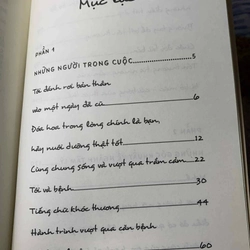 Mục lục
PHẦN 1
NHỮNG NGƯỜI TRONG CUỘC 5
Tôi đánh rơi bản thân
vào một ngày đã cũ 6
Đóa hoa trong lòng chính là bạn,
hãy nuôi dưỡng thật tốt 12
Cùng chung sống và vượt qua trầm cảm 22
Tôi và bệnh 30
Tiếng chữ khóc thương 44
Hành trình vượt qua căn bệnh
60